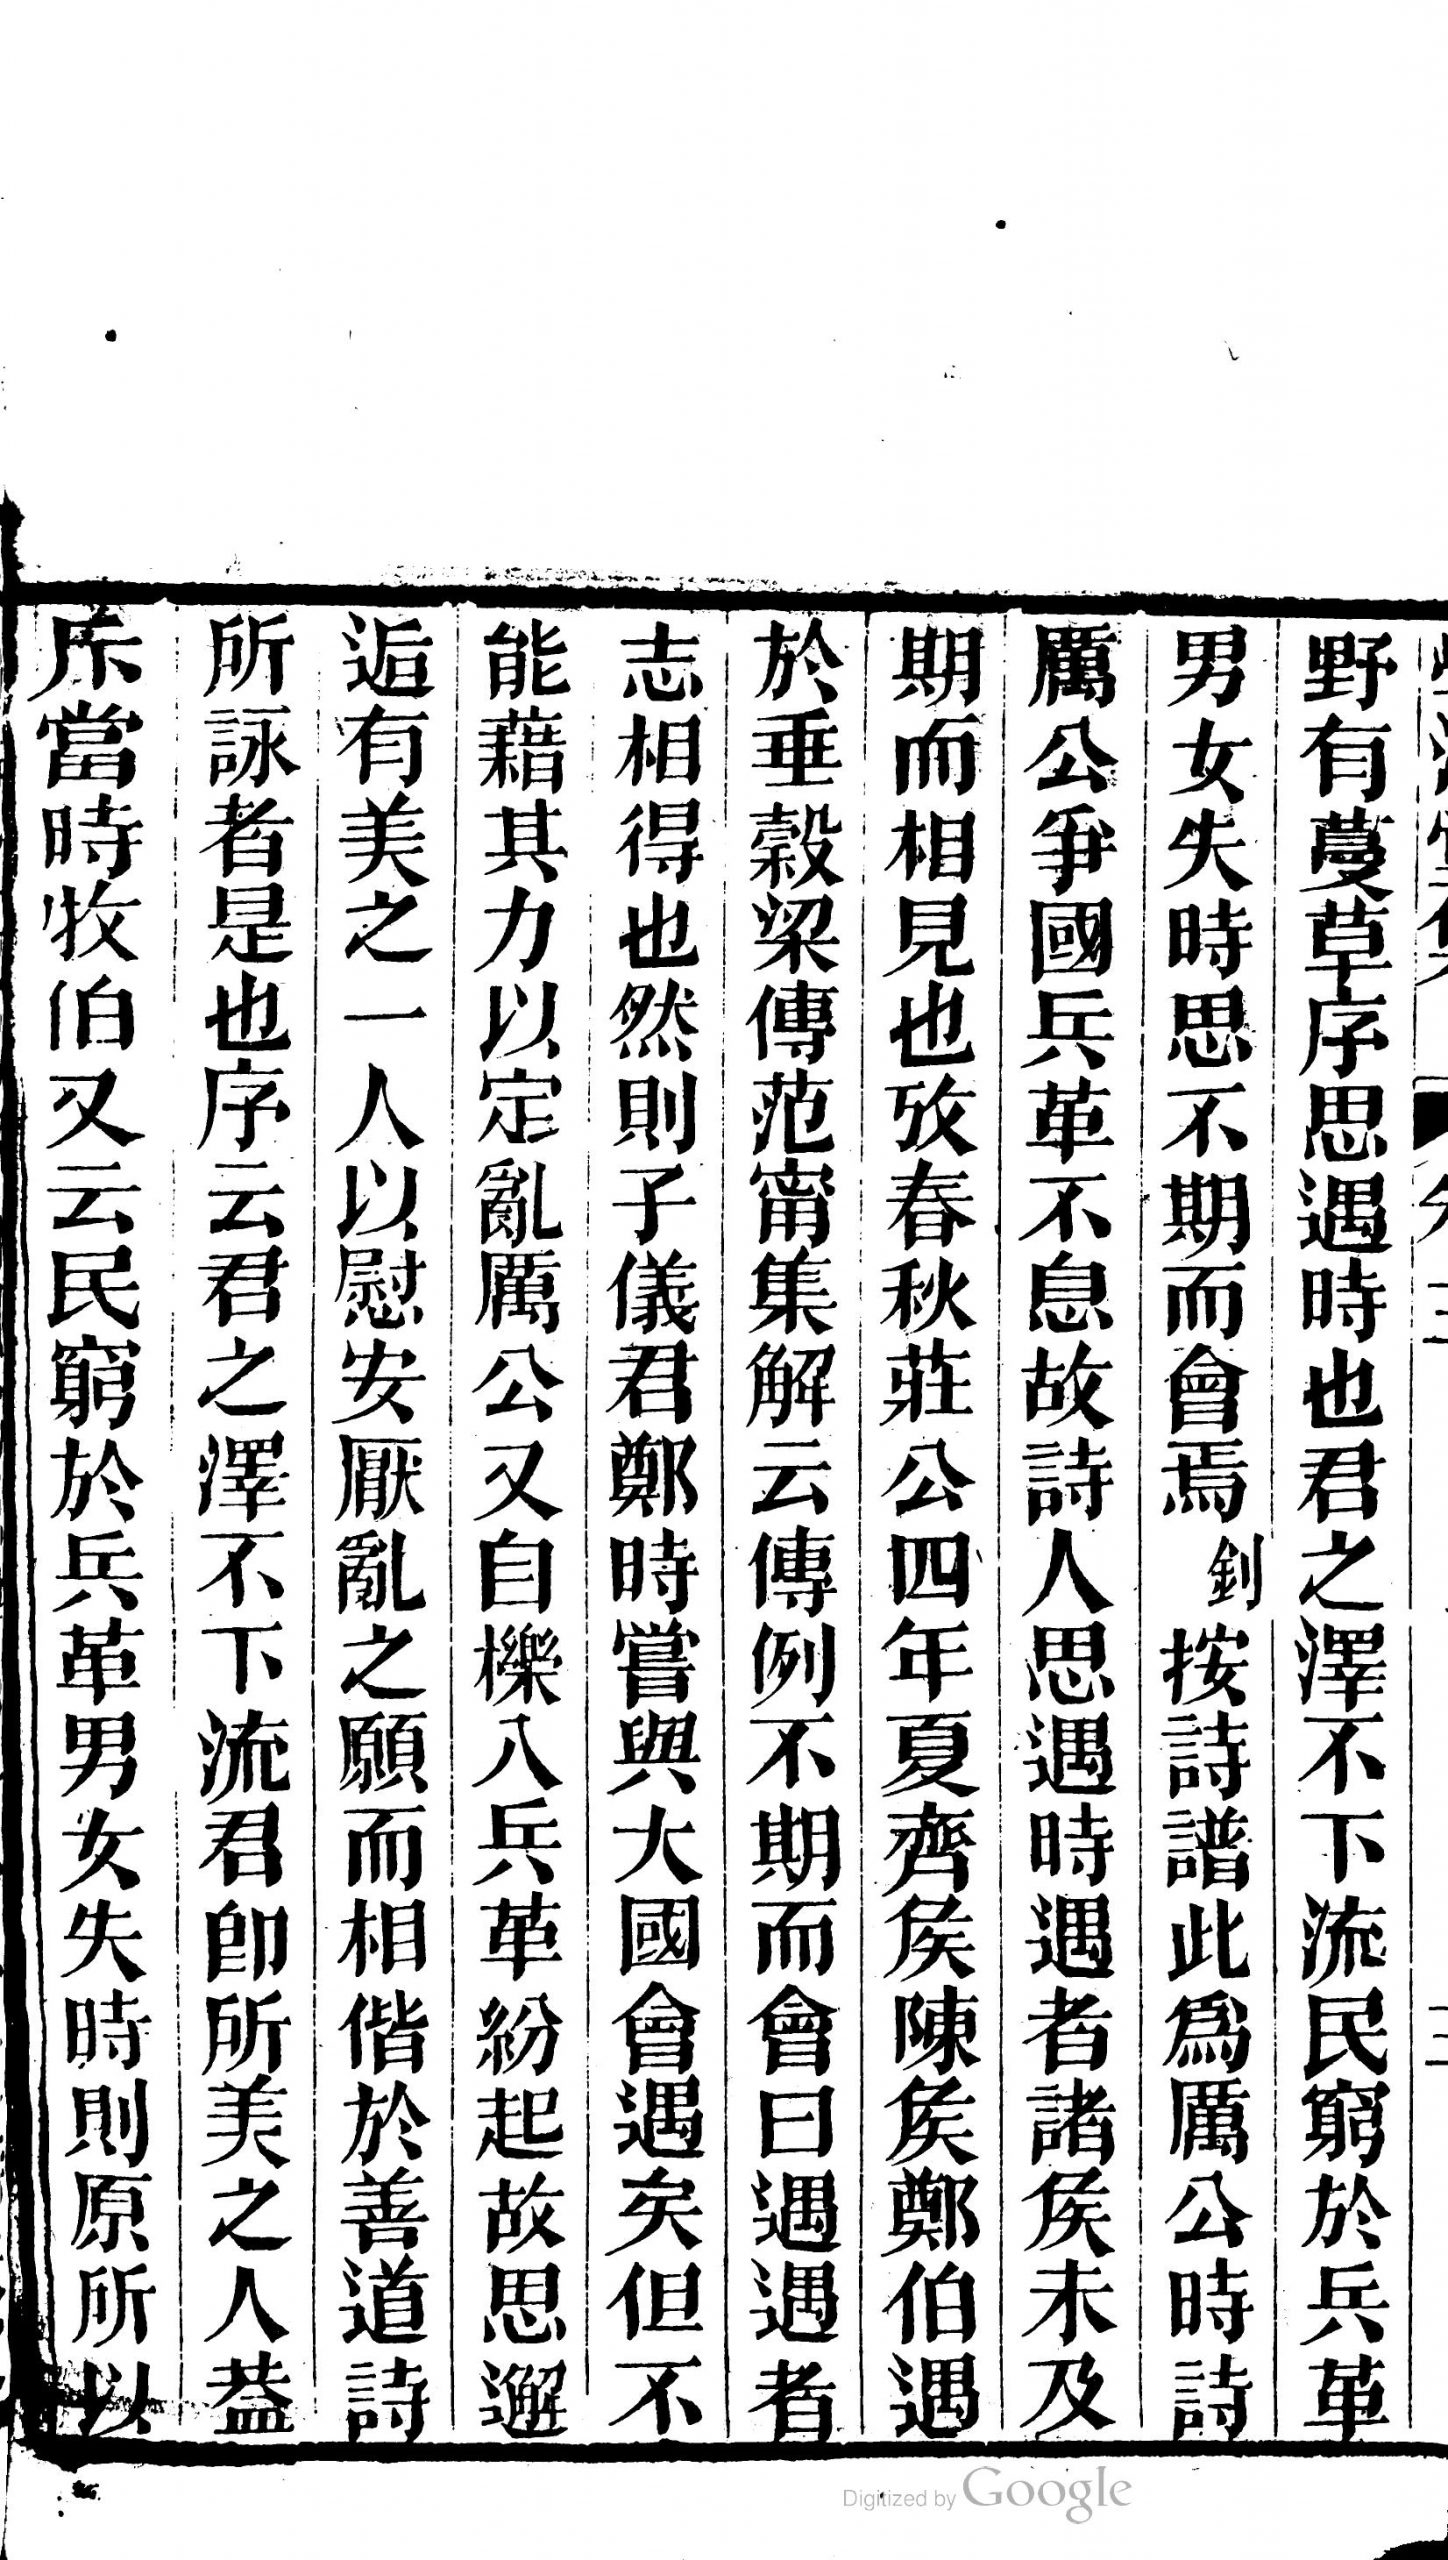 野有蔓草序思遇時也君之澤不下流民窮於兵革
男女失時思不期而會焉釗按詩譜此爲厲公時詩
厲公爭國兵革不息故詩人思遇時遇者諸侯未及
期而相見也攷春秋莊公四年夏齊侯陳侯鄭伯遇
於垂穀梁傳范甯集解云傳例不期而會曰遇遇者
志相得也然則子儀君鄭時嘗與大國會遇矣但不
能藉其力以定亂厲公又自櫟入兵革紛起故思邂
逅有美之一人以慰安厭亂之願而相偕於善道詩
所詠者是也序云君之澤不下流君卽所美之人葢
斥當時牧伯又云民窮於兵革男女失時則原所以
Digitized by Google